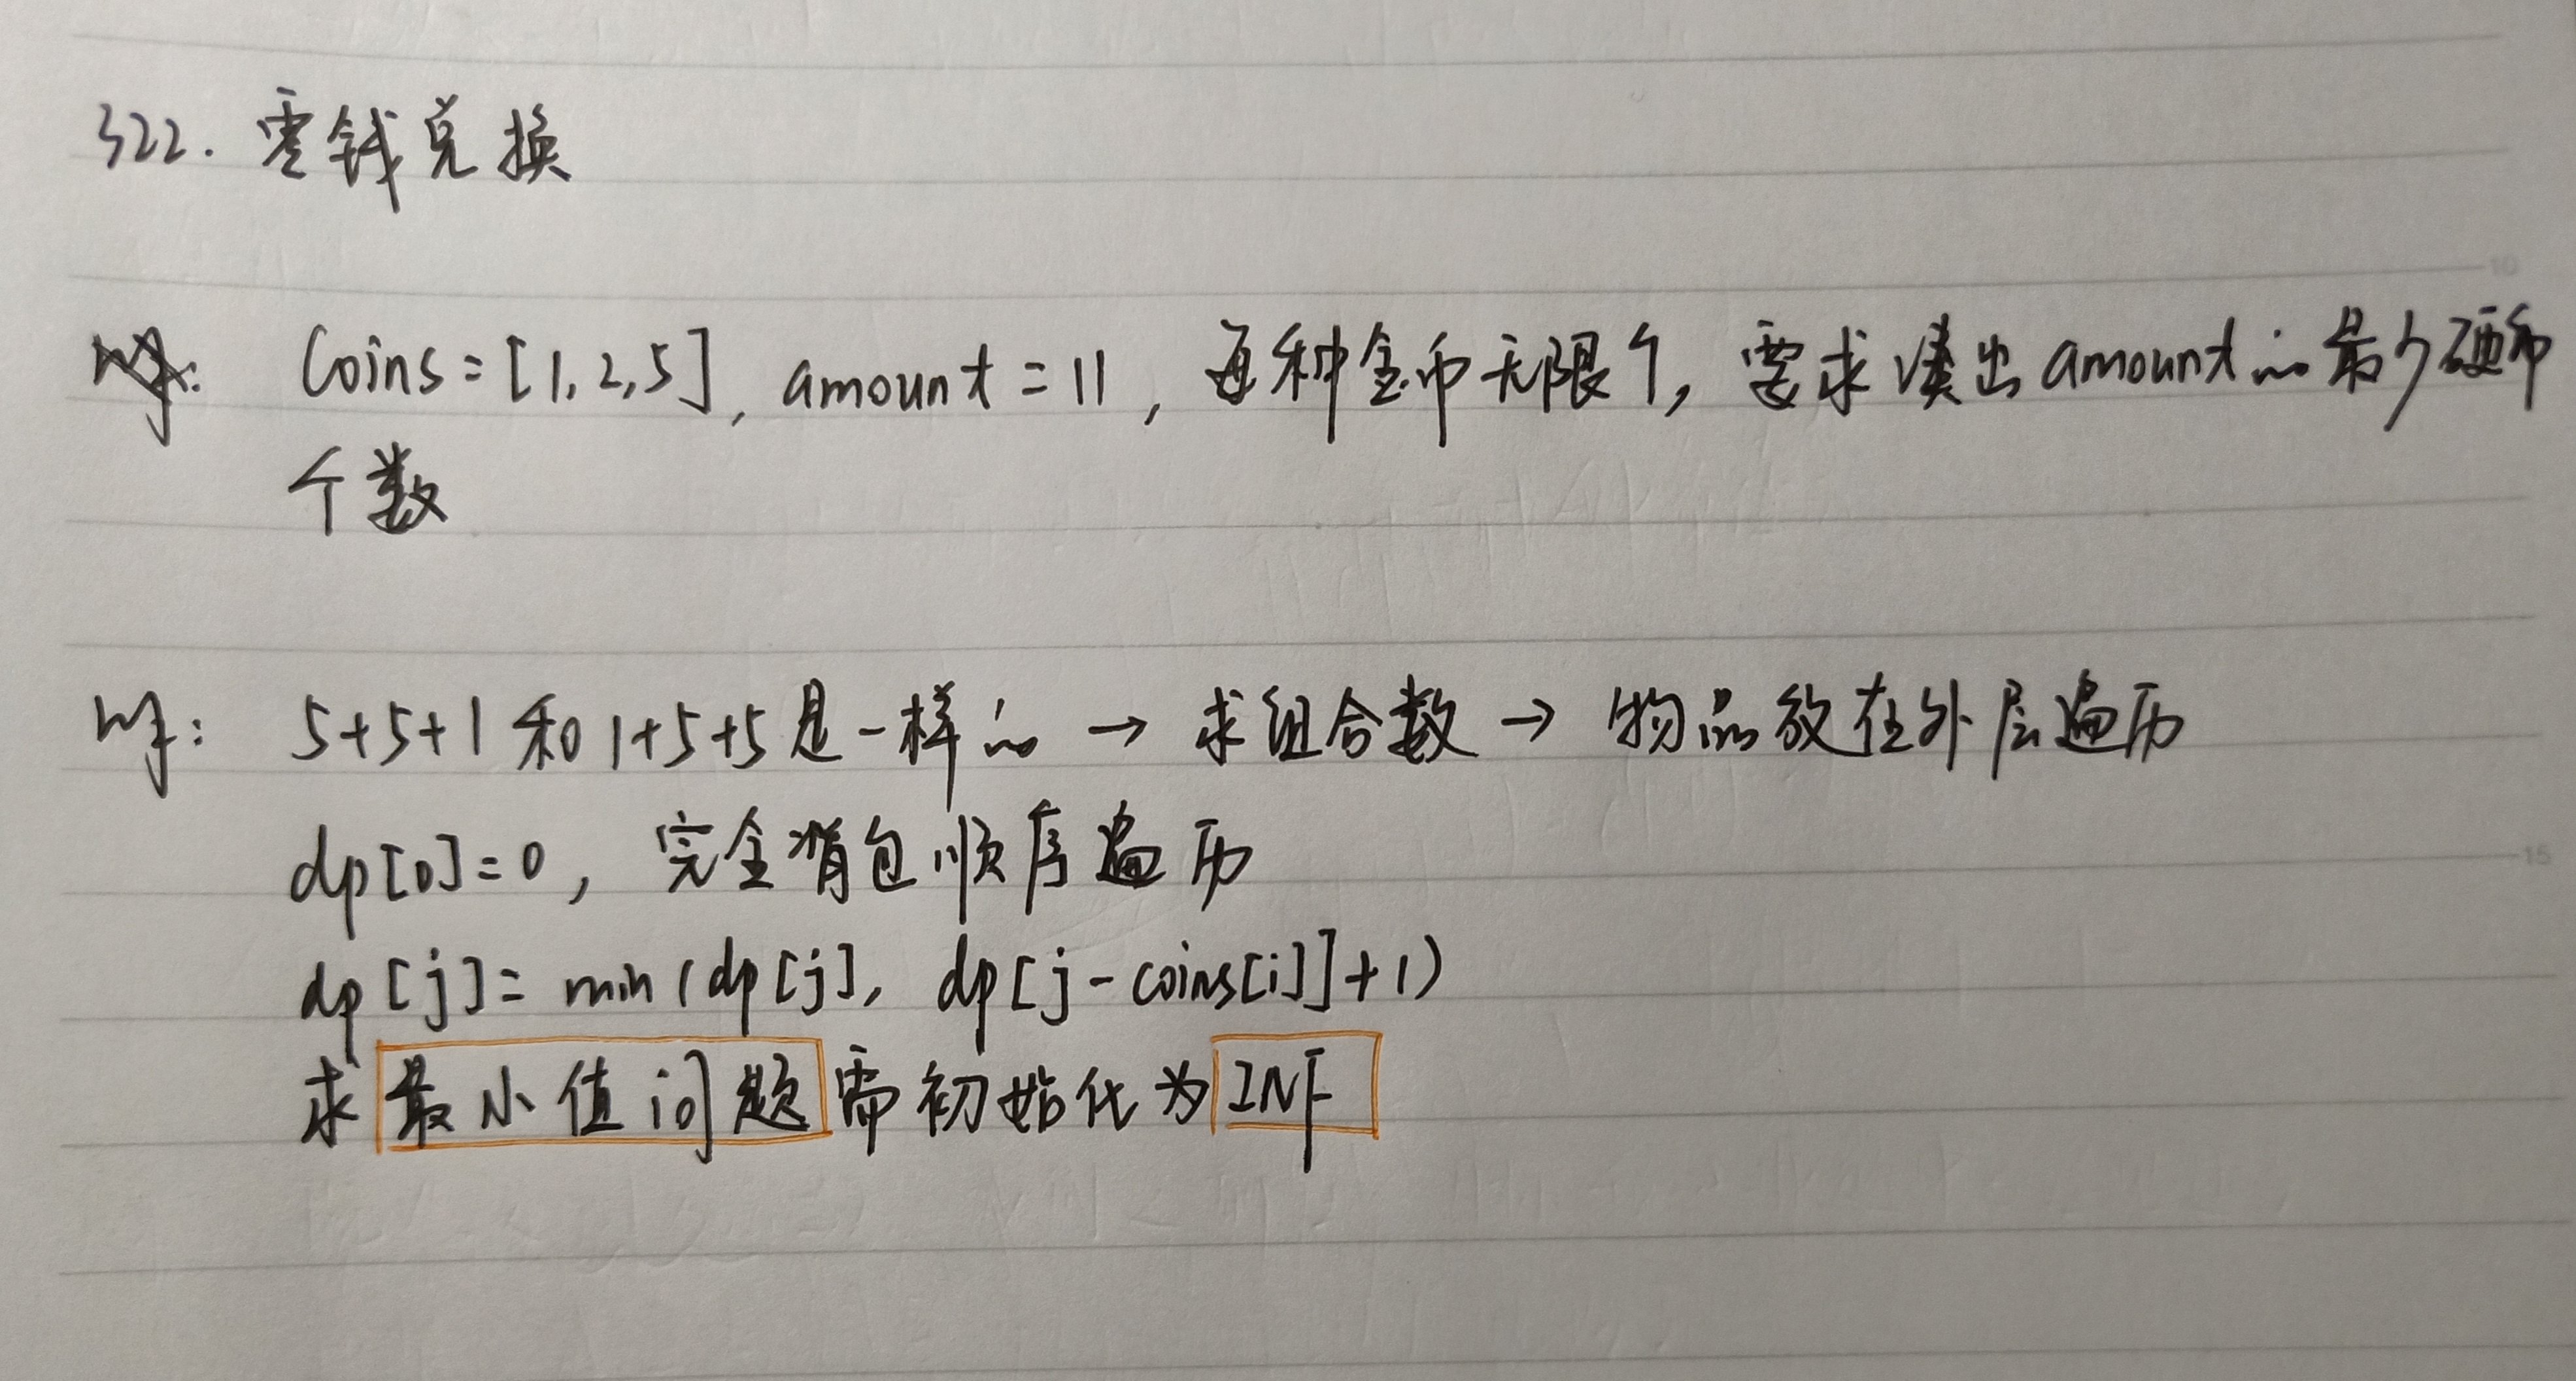 322. 零钱兑换
Coins = [1, 2, 5], amount = 11, 每种金币无限个, 要求凑出 amount 的最少硬币
个数
5+5+1 和 1+5+5 是一样的 → 求组合数 → 物品放在外层遍历
dp[0] = 0, 完全背包顺序遍历
dp[j] = min(dp[j], dp[j-coins[i]]+1)
求最小值问题需初始化为INF
10
15